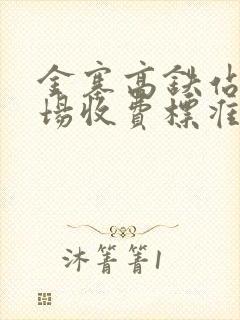 金寨高鉄佔
場收費標准
沐箐箐1